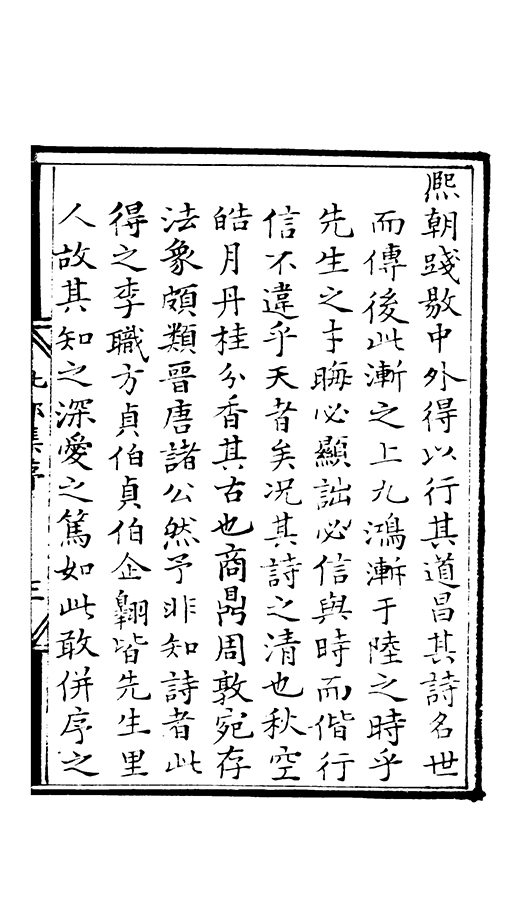 熈朝踐敭中外得以行其道昌其詩名世
而傳後此漸之上九鴻漸于陸之時乎
先生之才晦必顯詘必信與時而偕行
信不違乎天者矣况其詩之清也秋空
皓月丹桂分香其古也商鼎周敦宛存
法象頗類晉唐諸公然予非知詩者此
得之李職方貞伯貞伯企翺皆先生里
人故其知之深愛之篤如此敢併序之
集序
三